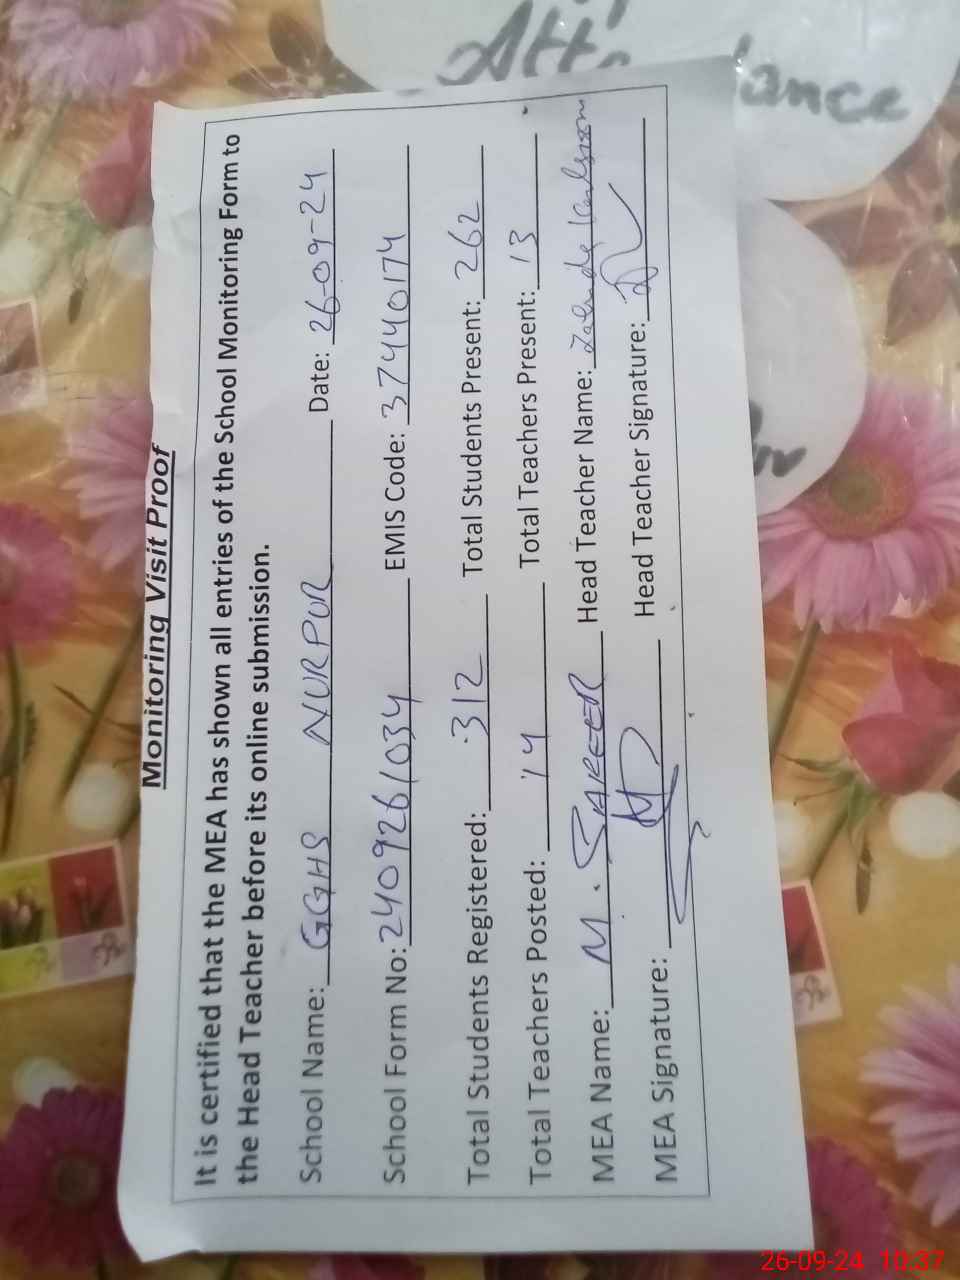 Monitoring Visit Proof
It is certified that the MEA has shown all entries of the School Monitoring Form to
the Head Teacher before its online submission.
School Name: GGHS NURPUR Date: 26-09-24
School Form No: 2409261034 EMIS Code: 37440174
Total Students Registered: 312 Total Students Present: 262
Total Teachers Posted: 14 Total Teachers Present: 13
MEA Name: M. SAFEER Head Teacher Name:
MEA Signature: Head Teacher Signature:
26-09-24 10:37